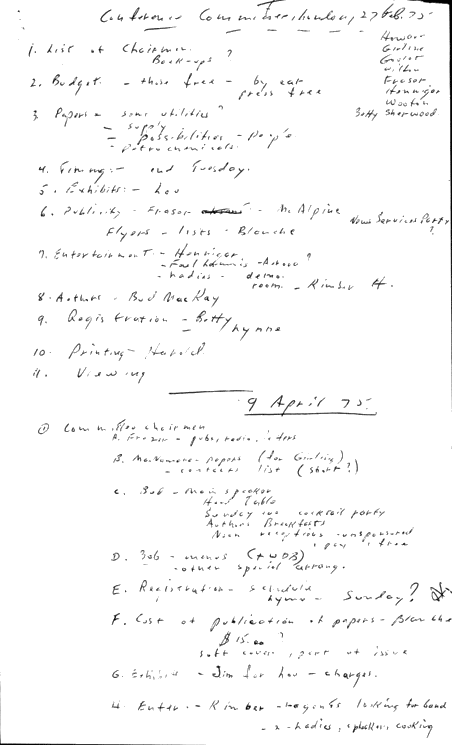 Conference Committee 27 Feb. 75
1. List of Chairmen ?
Back-ups
Howard
Girling
Wilkin
Fraser
Hennigar
Wooton
Betty Sherwood
2. Budget. - those free - by ear
press free
3. Papers - some utilities ?
- supply
- possibilities - People
- petrochemicals.
4. Timing:- end Tuesday.
5. Exhibits:- Lou
6. Publicity - Fraser - McAlpine
News Services Party ?
Flyers - lists - Blanche
7. Entertainment - Hennigar ?
- Ladies - demo.
room - Kimber H.
8. Authors - Bud MacKay
9. Registration - Betty
- Lynne
10. Printing - Harold
11. Viewing
9 April 75.
① Committee chairmen
A. Frazer - pubs, radio,
B. MacNamara - papers (for Girling)
- contacts list (short?)
C. Bob - Main speaker
Head Table
Sunday cocktail party
Authors Breakfasts
Noon receptions - unsponsored
, pay , free
D. Bob - menus (+ WDB)
- other special arrang.
E. Registration - schedule
- Sunday?
F. Cost of publication of papers - Blanche
$15.00 ?
soft cover, part of issue
G. Exhibits - Jim for Lou - charges.
H. Enter. - Kimber - looking for band
- Ladies, cooking